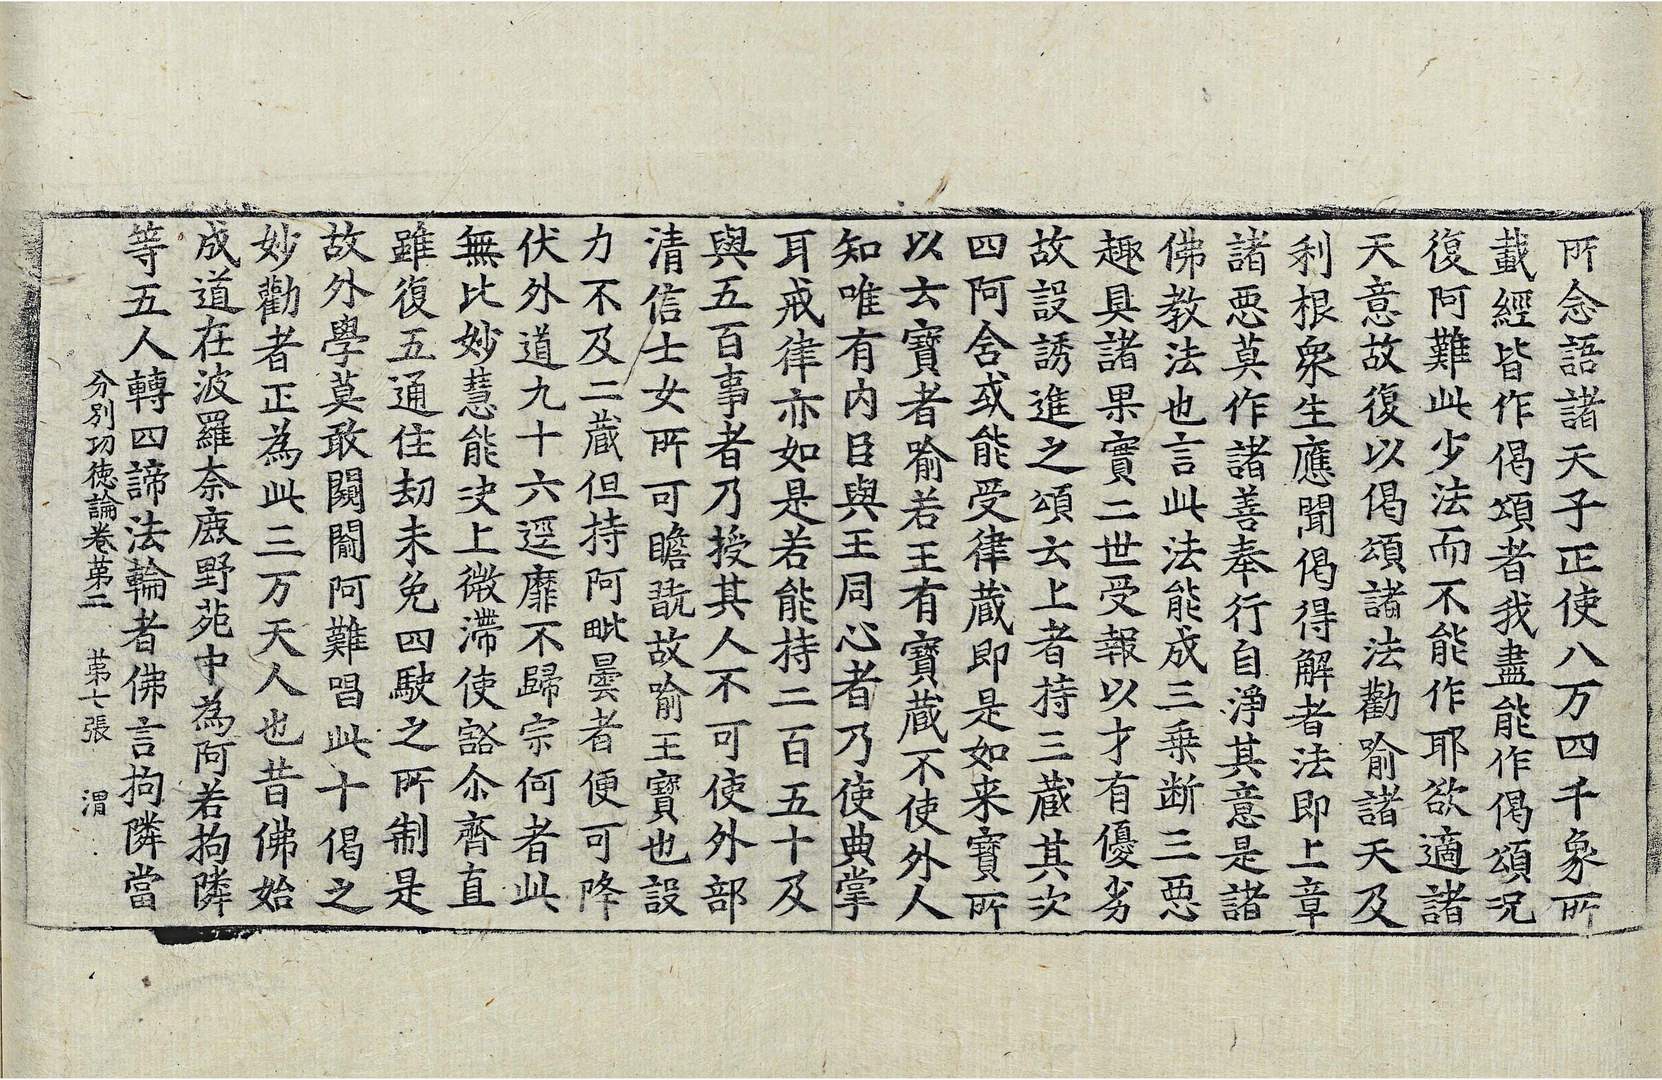 所念語諸天子正使八万四千象所
載經皆作偈頌者我盡能作偈頌況
復阿難此少法而不能作耶欲適諸
天意故復以偈頌諸法勸喻諸天及
利根衆生應聞偈得解者法即上章
諸惡莫作諸善奉行自淨其意是諸
佛教法也言此法能成三乗断三惡
趣具諸果實二世受報以才有優劣
故設誘進之頌云上者持三蔵其次
四阿含或能受律蔵即是如来寳所
以云寳者喻若王有寳蔵不使外人
知唯有内臣與王同心者乃使典掌
耳戒律亦如是若能持二百五十及
與五百事者乃授其人不可使外部
清信士女所可瞻翫故喻王寳也設
力不及二蔵但持阿毗曇者便可降
伏外道九十六逕靡不歸宗何者此
無比妙慧能决上微滯使豁尒齊直
雖復五通住劫未免四駛之所制是
故外學莫敢闚𨵦阿難唱此十偈之
妙勸者正為此三万天人也昔佛始
成道在波羅奈鹿野苑中為阿若拘隣
等五人轉四諦法輪者佛言拘隣當
分別功徳論卷苐二 苐七張 渭